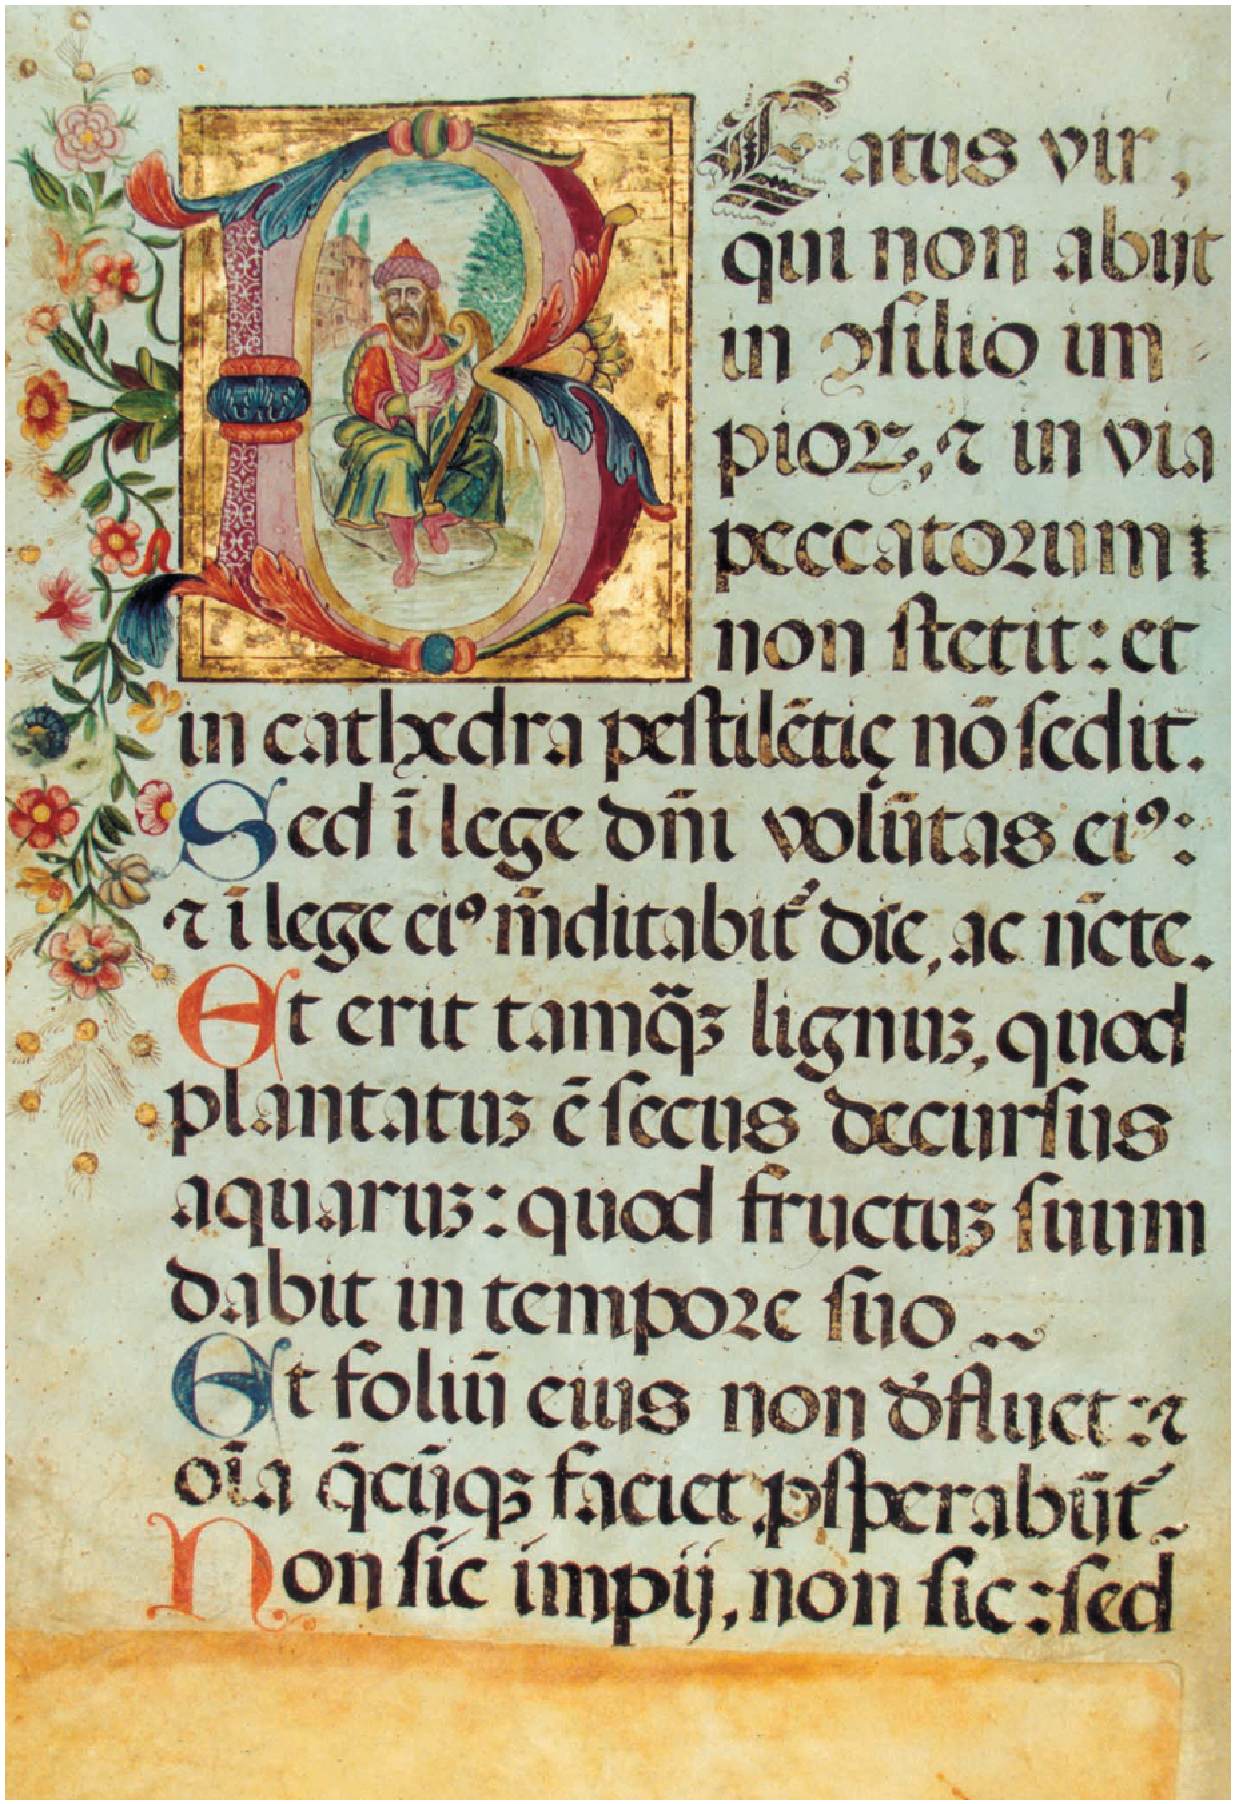 Beatus vir,
qui non abijt
in ↄſilio im
pioꝝ, ⁊ in via
peccatorum
non ſtetit: et
in cathedra peſtilētię nō ſedit.
Sed ī lege dn̄i volūtas eiꝰ:
⁊ ī lege eiꝰ m̄ditabit᷑ die, ac n̄cte.
Et erit tamq̄ꝫ lignuꝫ, quod
plantatuꝫ ē ſecus decurſus
aquaruꝫ: quod fructuꝫ ſuum
dabit in tempore ſuo
Et foliū eius non d̓fluet: ⁊
oīa q̄cūqꝫ faciet ꝓſperabūt᷑
Non ſic impij, non ſic: ſed